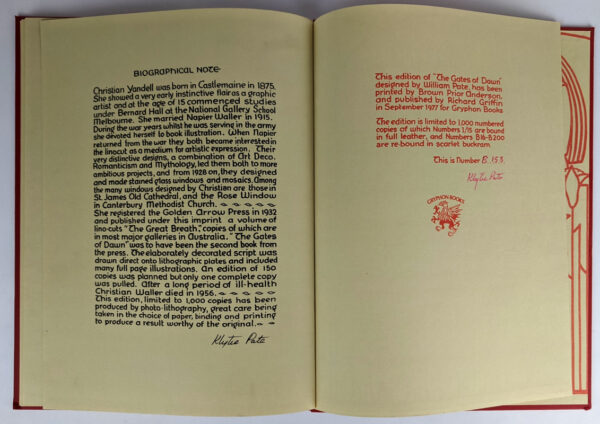 BIOGRAPHICAL NOTE
Christian Yandell was born in Castlemaine in 1895.
She showed a very early instinctive flair as a graphic
artist and at the age of 15 commenced studies
under Bernard Hall at the National Gallery School
Melbourne. She married Napier Waller in 1915.
During the war years whilst he was serving in the army
she devoted herself to book illustration. When Napier
returned from the war they both became interested in
the linocut as a medium for artistic expression. Their
very distinctive designs, a combination of Art Deco.
Romanticism and Mythology, led them both to more
ambitious projects, and from 1928 on, they designed
and made stained glass windows and mosaics. Among
the many windows designed by Christian are those in
St. James Old Cathedral, and the Rose Window
in Canterbury Methodist Church.
She registered the Golden Arrow Press in 1932
and published under this imprint a volume of
lino-cuts "The Great Breath", copies of which are
in most major galleries in Australia. "The Gates
of Dawn" was to have been the second book from
the press. The elaborately decorated script was
drawn direct onto lithographic plates and included
many full page illustrations. An edition of 150
copies was planned but only one complete copy
was pulled. After a long period of ill-health
Christian Waller died in 1956.
This edition, limited to 1,000 copies has been
produced by photo-lithography, great care being
taken in the choice of paper, binding and printing
to produce a result worthy of the original.
Klytie Pate
This edition of "The Gates of Dawn"
designed by William Pate, has been
printed by Brown Prior Anderson,
and published by Richard Griffin
in September 1977 for Gryphon Books
The edition is limited to 1,000 numbered
copies of which Numbers 1/15 are bound
in full leather, and Numbers B16-B200
are re-bound in scarlet buckram.
This is Number B.153.
Klytie Pate
GRYPHON BOOKS